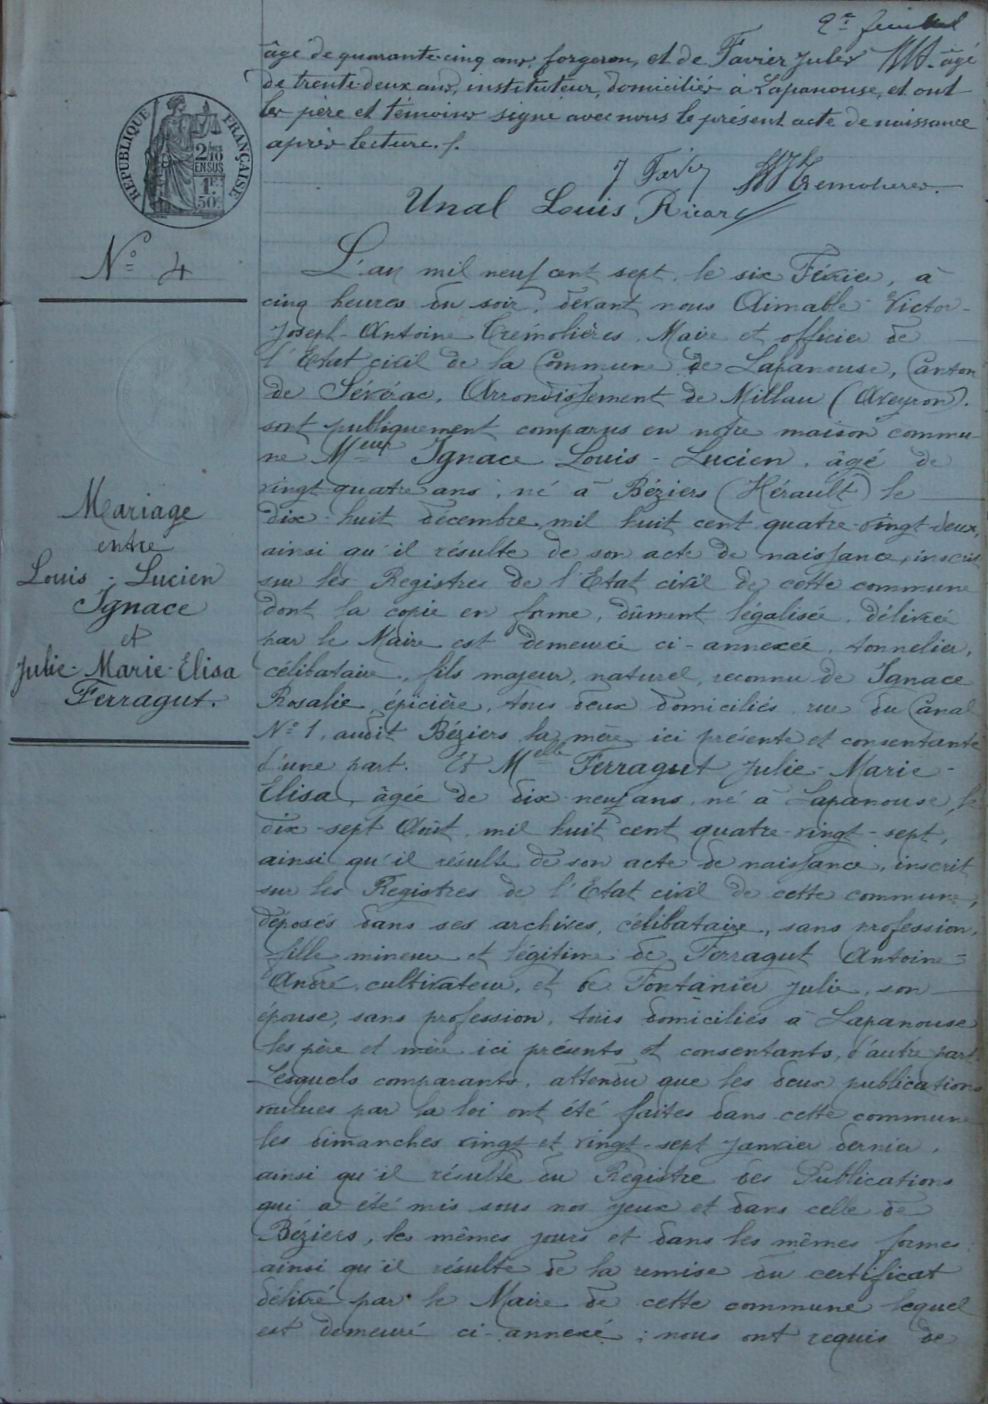 2e feuillet
âgé de quarante cinq ans, forgeron, et de Favier Jules âgé
de trente deux ans, instituteur, domiciliés à Lapanouse, et ont
les père et témoins signé avec nous le présent acte de naissance
après lecture.
J Favier Trémolières
Unal Louis Ricard
RÉPUBLIQUE FRANÇAISE
2/10
EN SUS
1F.
50c
N° 4
L'an mil neuf cent sept, le six Février, à
cinq heures du soir, devant nous Aimable Victor-
Joseph-Antoine Trémolières, Maire et officier de
l'Etat civil de la Commune de Lapanouse, Canton
de Sévérac, Arrondissement de Millau (Aveyron).
sont publiquement comparus en notre maison commu-
ne Meur Ignace Louis-Lucien, âgé de
vingt quatre ans, né à Béziers (Hérault) le
dix-huit décembre mil huit cent quatre-vingt-deux,
ainsi qu'il résulte de son acte de naissance, inscrit
sur les Registres de l'Etat civil de cette commune
dont la copie en forme, dûment légalisée, délivrée
par le Maire est demeurée ci-annexée, tonnelier,
célibataire, fils majeur, naturel, reconnu de Ignace
Rosalie, épicière, tous deux domiciliés rue du Canal
N° 1, audit Béziers, la mère ici présente et consentante
d'une part. Et Melle Ferragut Julie-Marie-
Elisa, âgée de dix-neuf ans, né à Lapanouse, le
dix-sept Août mil huit cent quatre-vingt-sept,
ainsi qu'il résulte de son acte de naissance, inscrit
sur les Registres de l'Etat civil de cette commune,
déposés dans ses archives, célibataire, sans profession,
fille mineure et légitime de Ferragut Antoine-
André, cultivateur, et de Fontanier Julie, son
épouse, sans profession, tous domiciliés à Lapanouse
les père et mère ici présents et consentants, d'autre part.
Lesquels comparants, attendu que les deux publications
voulues par la loi ont été faites dans cette commune
les dimanches vingt et vingt-sept Janvier dernier,
ainsi qu'il résulte du Registre des Publications
qui a été mis sous nos yeux et dans celle de
Béziers, les mêmes jours et dans les mêmes formes
ainsi qu'il résulte de la remise du certificat
délivré par le Maire de cette commune lequel
est demeuré ci-annexé ; nous ont requis de
Mariage
entre
Louis-Lucien
Ignace
et
Julie-Marie-Elisa
Ferragut.